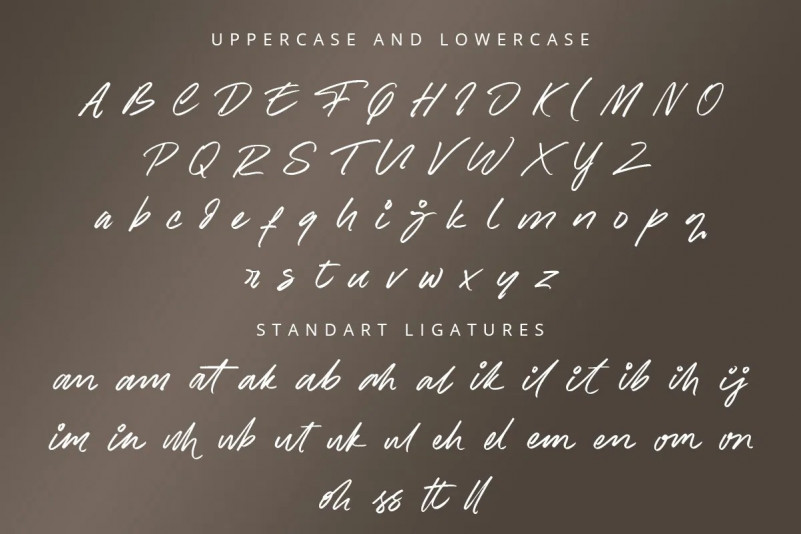 UPPERCASE AND LOWERCASE
A B C D E F G H I J K L M N O
P Q R S T U V W X Y Z
a b c d e f g h i j k l m n o p q
r s t u v w x y z
STANDART LIGATURES
an am at ak ab ah al ik il it ib ih ij
im in uh ub ut uk ul eh el em en om on
oh ss tt ll